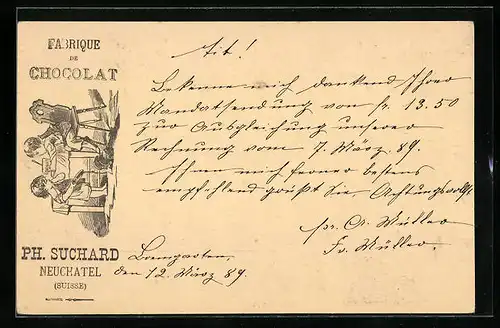 FABRIQUE
DE
CHOCOLAT
PH. SUCHARD
NEUCHATEL
(SUISSE)
Tit!
Bekenne mich dankend Ihrer
Mandatsendung von fr. 13.50
zur Ausgleichung unserer
Rechnung vom 7. März 89.
Ihnen mich ferner bestens
empfehlend grüßt Sie, Achtungsvollst
pr. A. Müller
Fr. Müller.
Bremgarten,
den 12. März 89.